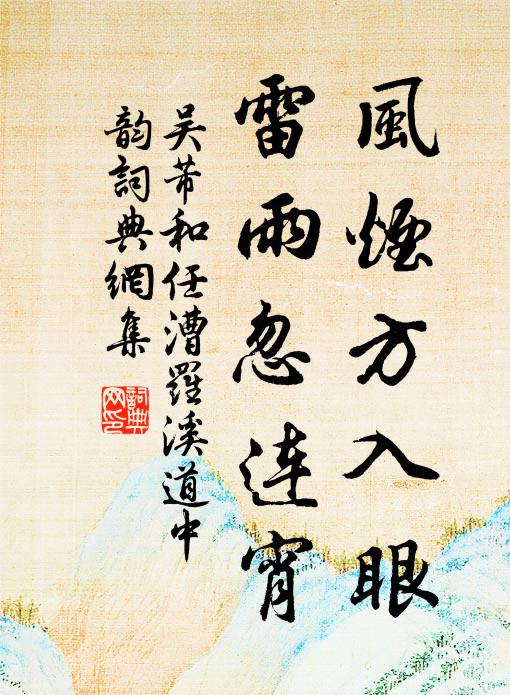 風煙方入眼
雷雨忽連宵
吴芾和任漕羅溪道中
韵詞典網集
詞典網印